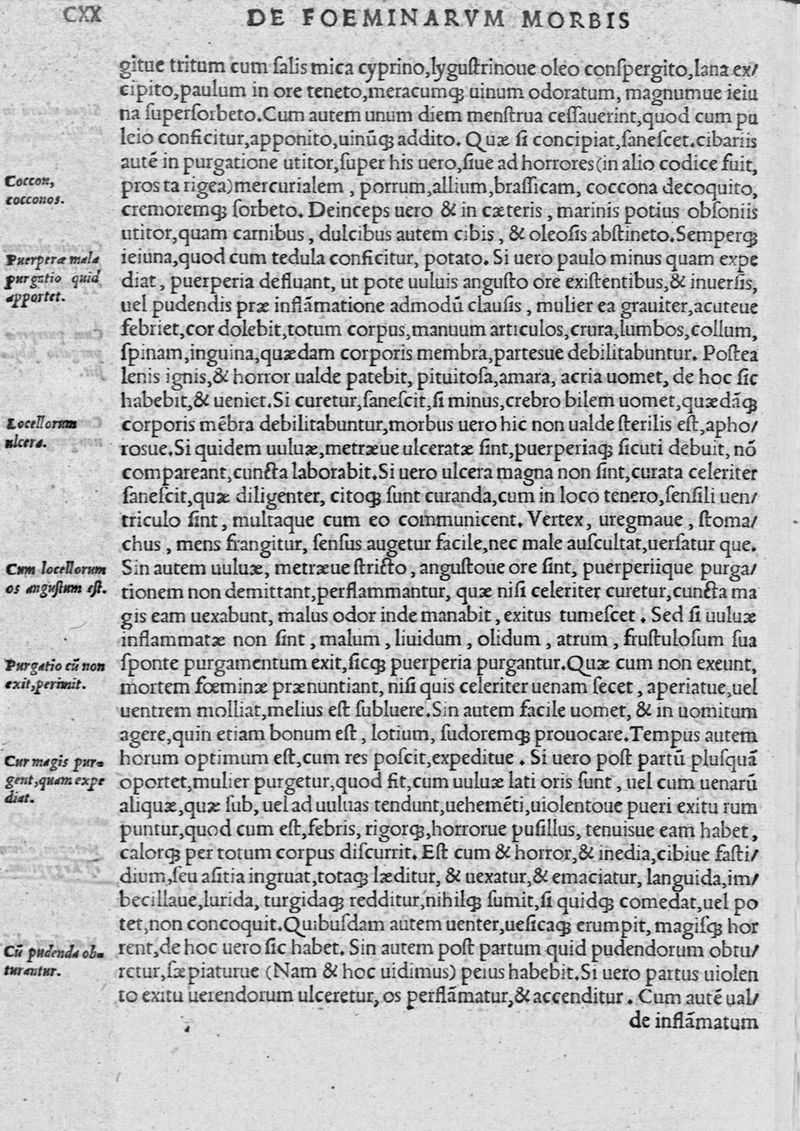 CXX
DE FOEMINARVM MORBIS
gitue tritum cum ſalis mica cyprino,lyguſtrinoue oleo conſpergito, lana ex/
cipito,paulum in ore teneto,meracumq; uinum odoratum, magnumue ieiu
na ſuperſorbeto.Cum autem unum diem menſtrua ceſſauerint,quod cum pu
leio conficitur,apponito,uinūq; addito. Quæ ſi concipiat,ſaneſcet.cibariis
autē in purgatione utitor,ſuper his uero,ſiue ad horrores(in alio codice fuit,
pros ta rigea)mercurialem , porrum,allium,braſſicam, coccona decoquito,
cremoremq; ſorbeto. Deinceps uero & in cæteris , marinis potius obſoniis
utitor,quam carnibus , dulcibus autem cibis , & oleoſis abſtineto.Semperq;
ieiuna,quod cum tedula conficitur, potato. Si uero paulo minus quam expe
diat , puerperia defluant, ut pote uuluis anguſto ore exiſtentibus,& inuerſis,
uel pudendis præ inflāmatione admodū clauſis , mulier ea grauiter,acuteue
febriet,cor dolebit,totum corpus,manuum articulos,crura,lumbos,collum,
ſpinam,inguina,quædam corporis membra,partesue debilitabuntur. Poſtea
lenis ignis,& horror ualde patebit, pituitoſa,amara, acria uomet, de hoc ſic
habebit,& ueniet.Si curetur,ſaneſcit,ſi minus,crebro bilem uomet,quædāq;
corporis mēbra debilitabuntur,morbus uero hic non ualde ſterilis eſt,apho/
rosue.Si quidem uuluæ,metræue ulceratæ ſint,puerperiaq; ſicuti debuit, nō
compareant,cuncta laborabit.Si uero ulcera magna non ſint,curata celeriter
ſaneſcit,quæ diligenter, citoq; ſunt curanda,cum in loco tenero,ſenſili uen/
triculo ſint , multaque cum eo communicent. Vertex, uregmaue , ſtoma/
chus , mens frangitur, ſenſus augetur facile,nec male auſcultat,uerſatur que.
Sin autem uuluæ, metræue ſtricto , anguſtoue ore ſint, puerperiique purga/
tionem non demittant,perflammantur, quæ niſi celeriter curetur,cuncta ma
gis eam uexabunt, malus odor inde manabit , exitus tumeſcet . Sed ſi uuluæ
inflammatæ non ſint , malum , liuidum , olidum , atrum , fruſtuloſum ſua
ſponte purgamentum exit,ſicq; puerperia purgantur.Quæ cum non exeunt,
mortem fœminæ prænuntiant, niſi quis celeriter uenam ſecet , aperiatue,uel
uentrem molliat,melius eſt ſubluere.Sin autem facile uomet, & in uomitum
agere,quin etiam bonum eſt , lotium, ſudoremq; prouocare.Tempus autem
horum optimum eſt,cum res poſcit,expeditue . Si uero poſt partū pluſquā
oportet,mulier purgetur,quod fit,cum uuluæ lati oris ſunt , uel cum uenarū
aliquæ,quæ ſub, uel ad uuluas tendunt,uehemēti,uiolentoue pueri exitu rum
puntur,quod cum eſt,febris, rigorq;,horrorue puſillus, tenuisue eam habet,
calorq; per totum corpus diſcurrit. Eſt cum & horror,& inedia,cibiue faſti/
dium,ſeu aſitia ingruat,totaq; læditur, & uexatur,& emaciatur, languida,im/
becillaue,lurida, turgidaq; redditur,nihilq; ſumit,ſi quidq; comedat,uel po
tet,non concoquit.Quibuſdam autem uenter,ueſicaq; erumpit, magiſq; hor
rent,de hoc uero ſic habet. Sin autem poſt partum quid pudendorum obtu/
retur,ſæpiaturue (Nam & hoc uidimus) peius habebit.Si uero partus uiolen
to exitu uerendorum ulceretur, os perflāmatur,& accenditur . Cum autē ual/
de inflāmatum
Coccon,
cocconos.
Puerperæ mala
purgatio quid
apportet.
Locellorum
ulcera.
Cum locellorum
os anguſtum eſt.
Purgatio cū non
exit,perimit.
Cur magis pur-
gent,quam expe
diat.
Cū pudenda ob-
turantur.